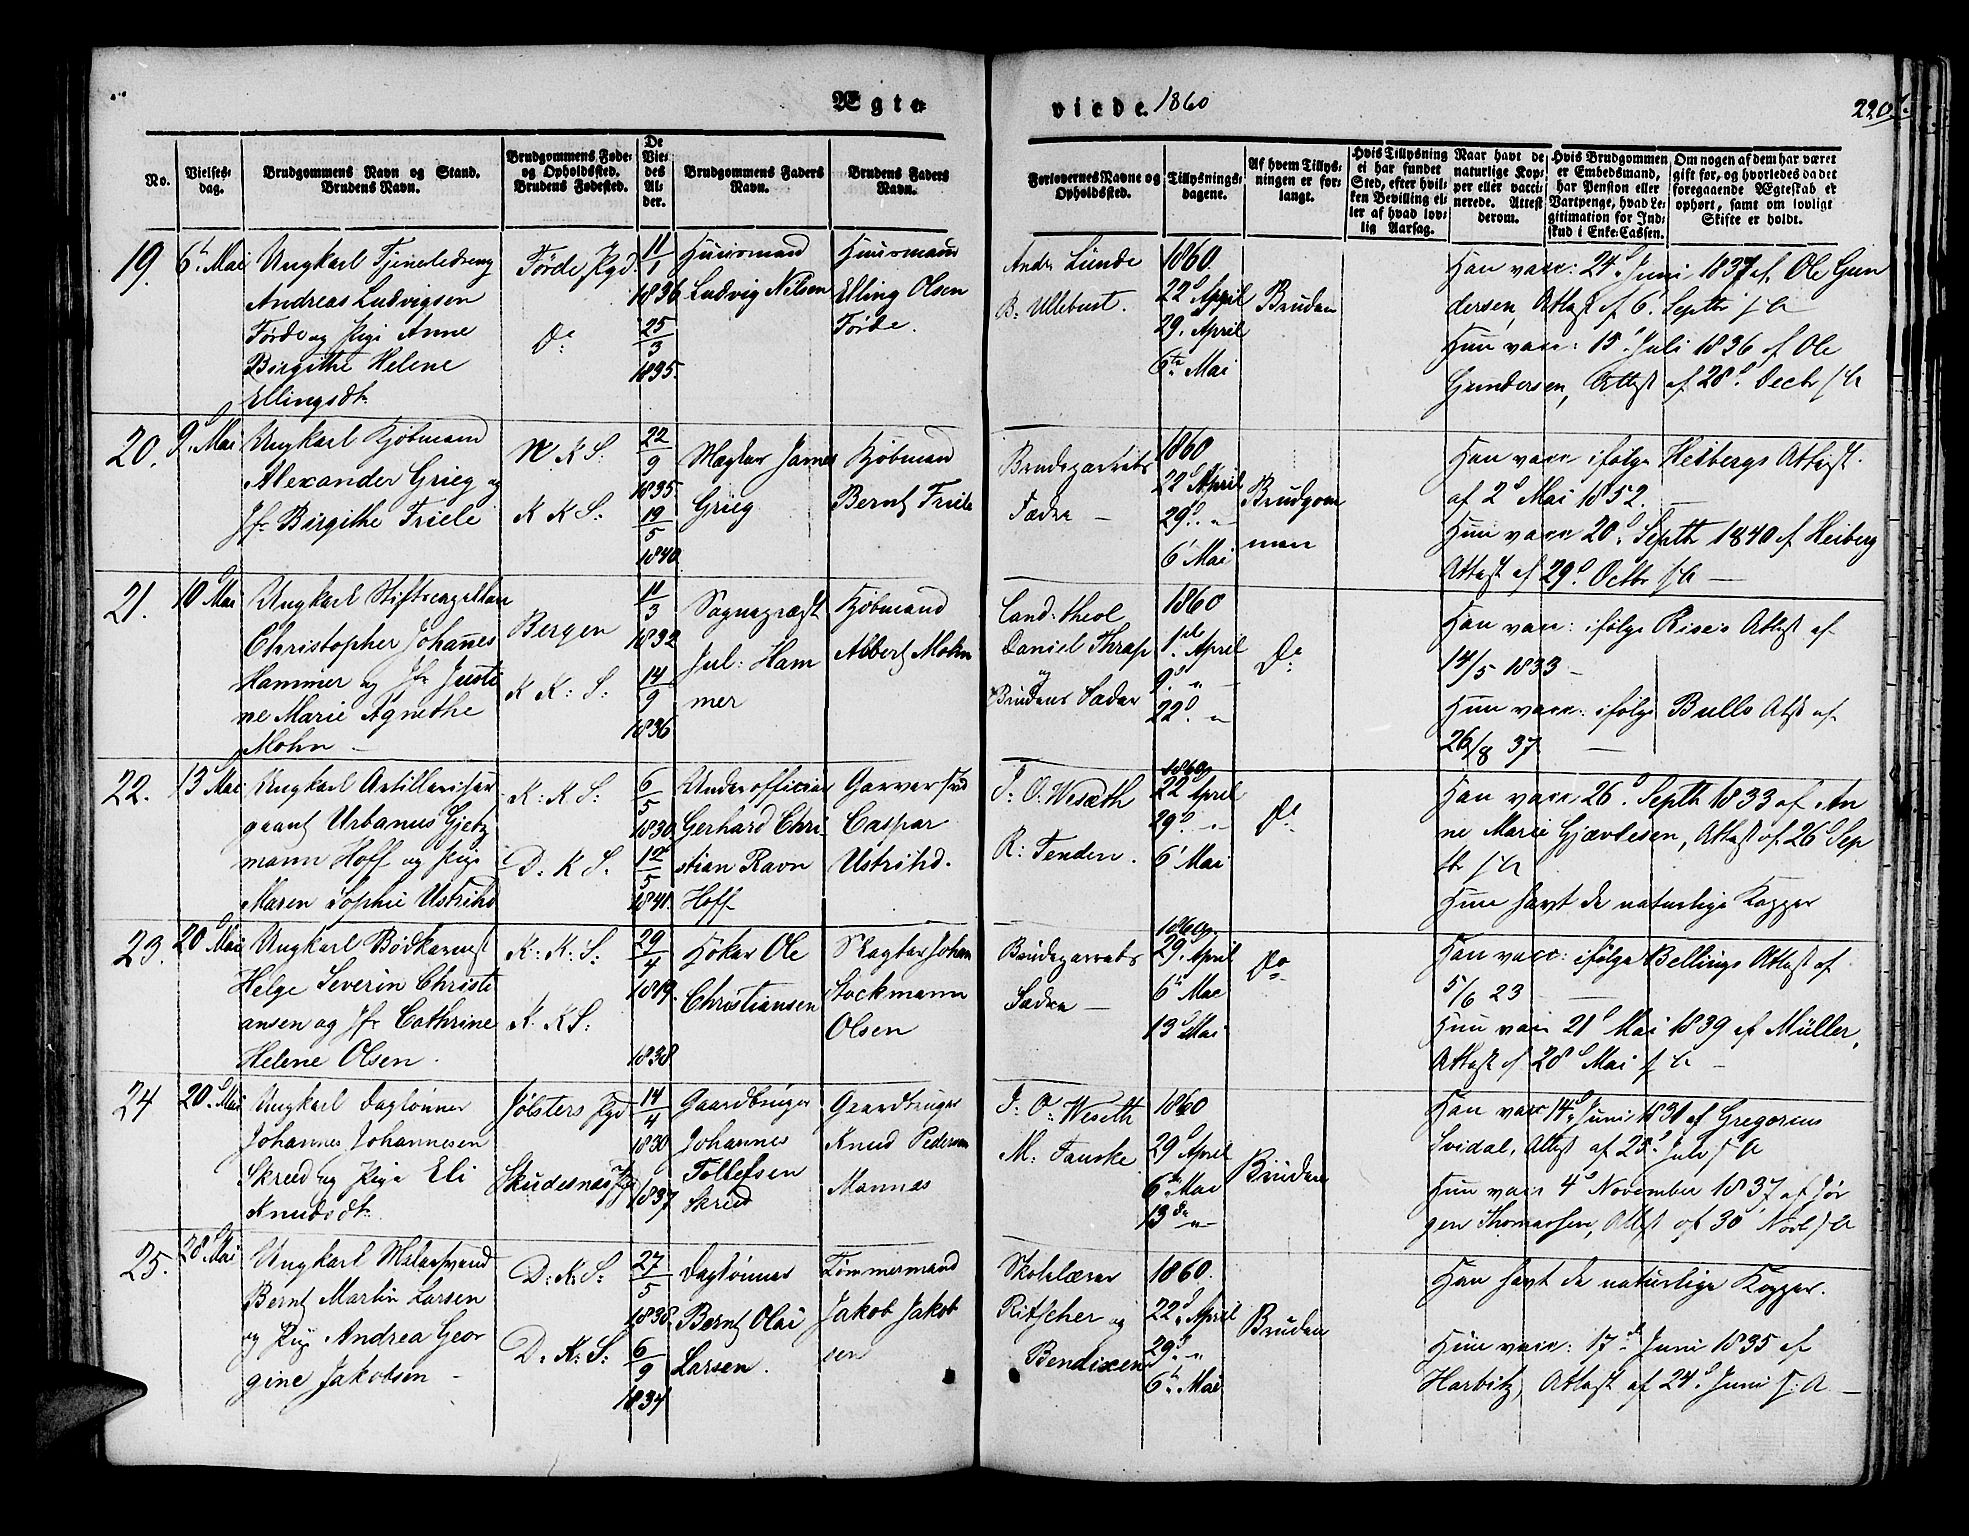 Ægte
viede 1860
220
No.
Vielses-
dag.
Brudgommens Navn og Stand.
Brudens Navn.
Brudgommens Føde-
og Opholdssted.
Brudens Fødested.
De
Vie-
des
Al-
der.
Brudgommens Faders
Navn.
Brudens Faders
Navn.
Forlovernes Navne og
Opholdssted.
Tillysnings-
dagene.
Af hvem Tillys-
ningen er for-
langt.
Hvis Tillysning
ei har fundet
Sted, efter hvil-
ken Bevilling el-
ler af hvad lov-
lig Aarsag.
Naar havt de
naturlige Kop-
per eller vacci-
nerede. Attest
derom.
Hvis Brudgommen
er Embedsmand,
har Pension eller
Vartpenge, hvad Le-
gitimation for Ind-
skud i Enke-Cassen.
Om nogen af dem har været
gift før, og hvorledes da det
foregaaende Ægteskab er
ophørt, samt om lovligt
Skifte er holdt.
19.
6t Mai
Ungkarl Tjenestedreng
Andreas Ludvigsen
Førde og Pige Anne
Birgithe Helene
Ellingsdt.
Førde Pgd.
Do
11/1
1836
25/3
1835.
Huusmand
Ludvig Nilsen
Huusmand
Elling Olsen
Førde.
Andr. Lunde
B: Ullebust.
1860
22d April
29. April
6te Mai
Bruden
Han vacc: 24d Juni 1837 af Ole Gun
dersen, Attest af 6t Septbr s A
Hun vacc: 15d Juli 1836 af Ole
Gundersen, Attest af 28d Decbr s A
20.
9d Mai
Ungkarl Kjøbmand
Alexander Grieg og
Jfr Birgithe Friele
N K S:
K K S:
22/9
1835.
19/5
1840.
Mægler James
Grieg
Kjøbmand
Bernt Friele
Brudeparrets
Fædre —
1860
22d April
29d "
6t Mai
Brudgom
men
Han vacc ifølge Heibergs Attest
af 2d Mai 1852. —
Hun vacc 20d Septbr 1840 af Heiberg
Attest af 29d Octbr s A —
21.
10 Mai
Ungkarl Stiftscapellan
Christopher Johannes
Hammer og Jfr Justi
ne Marie Agnethe
Mohn —
Bergen
K K: S:
11/3
1832
14/9
1836
Sognepræst
Jul: Ham
mer
Kjøbmand
Albert Mohn
Cand. theol
Daniel Thrap
og
Brudens Fader
1860
1ste April
9d "
22d "
Do
Han vacc: ifølge Rises Attest af
14/5 1833 —
Hun vacc: ifølge Bulls Atst af
26/8 37 —
22.
13 Mai
Ungkarl Artilleriser
geant Urbanus Gjetz
mann Hoff og Pige
Maren Sophie Ustrihd
K: K S:
D: K S.
6/5
1830.
12/5
1841.
Underofficier
Gerhard Chri
stian Ravn
Hoff
Garversvend
Caspar
Ustrihd.
T: O: Wesæth
R: Tenden.
1860
22 April
29d "
6t Mai
Do
Han vacc 26d Septbr 1833 af An
ne Marie Gjævlesen, Attest af 26d Sep
tbr s A
Hun havt de naturlige Kopper
23.
20d Mai
Ungkarl Bødkermest
Helge Severin Christi
ansen og Jfr Cathrine
Helene Olsen.
K: K: S:
K. K S:
29/4
1819.
1838
Høker Ole
Christiansen
Slagter Johan
Stockmann
Olsen
Brudeparrets
Fædre —
1860
29. April
6t Mai
13d Mai
Do
Han vacc: ifølge Bellings Attest af
5/6 23 —
Hun vacc 21d Mai 1839 af Müller,
Attest af 28d Mai s A —
24
20d Mai
Ungkarl Daglønner
Johannes Johannesen
Skreed og Pige Eli
Knudsdt.
Jølsters Pgd
Skudesnæs Pgd
14/4
1830
1837
Gaardbruger
Johannes
Tollefsen
Skreed
Gaardbruger
Knud Pedersen
Mannes
T: O: Weseth
M: Fauske.
1860
29d April
6te Mai
13de "
Bruden
Han vacc 14d Juni 1831 af Gregorius
Svidal, Attest af 25d Juli s A
Hun vacc 4d November 1837 af Jør
gen Thomassen, Attest af 30 Novbr s A
25.
28d Mai
Ungkarl Malersvend
Bernt Martin Larsen
og Pige Andrea Geor
gine Jakobsen —
D: K: S:
D: K: S:
27/5
1838.
6/9
1834
Daglønner
Bernt Olai
Larsen.
Tømmermand
Jakob Jakob
sen
Skolelærer
Ritscher og
Bendixen
1860.
22d April
29d "
6t Mai
Bruden
Han havt de naturlige Kopper.
Hun vacc: 17de Juni 1835 af
Harbitz, Attest af 24d Juni s: A —